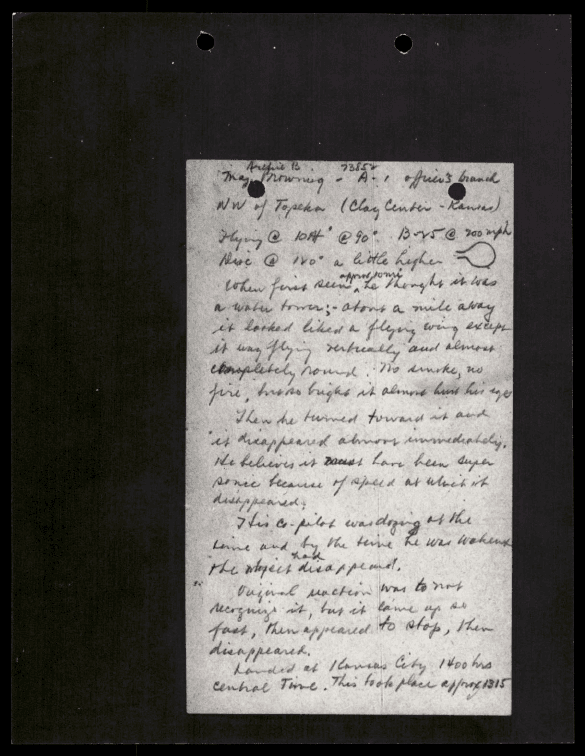 Archie B. 73852
Maj Browning - A-1 officers branch
NW of Topeka (Clay Center - Kansas)
Flying @ @ 90° B-25 @ 200 mph
Disc @ 180° a little higher
approx 50mi
When first seen, he thought it was
a water tower; - about a mile away
it looked liked a flying wing except
it was flying vertically and almost
completely round. No smoke, no
fire, but so bright it almost hurt his eyes
Then he turned toward it and
it disappeared almost immediately.
He believes it must have been super
sonic because of speed at which it
disappeared.
His co-pilot was dozing at the
time and by the time he was wakened
had
the object disappeared.
Original reaction was to not
recognize it, but it came up so
fast, then appeared to stop, then
disappeared.
Landed at Kansas City 1400 hrs
Central Time. This took place approx 1315